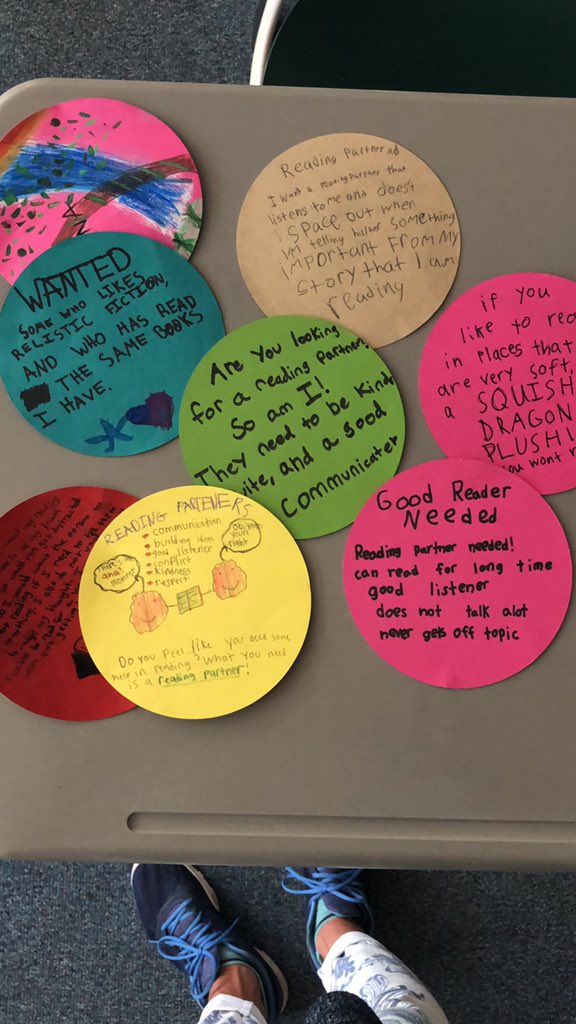 WANTED
SOME WHO LIKES
RELISTIC FICTION,
AND WHO HAS READ
THE SAME BOOKS
I HAVE.
Reading Partner ad
I want a reading Partner that
listens to me and doesn't
space out when
I'm telling his/her something
important From My
Story that I am
reading
Are You looking
for a reading Partner
So am I!
They need to be Kind
ite, and a good
Communicater
if you
like to rea
in Places that
are very soft,
a SQUISH
DRAGON
PLUSHI
you wont r
READING PARTENERS
communication
building ideas
good listener
conflict
kindness
respect
Thats
aha!
moment
Oh, yeah
youre
right
Do you Feel like you need some
help in reading? What you need
is a reading partner!
Good Reader
Needed
Reading partner needed!
can read for long time
good listener
does not talk alot
never gets off topic